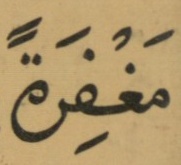 مَغْفِرَةً